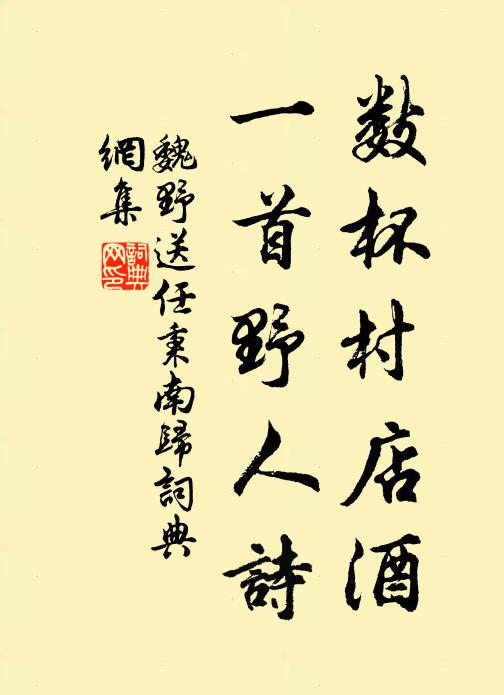 数杯村店酒
一首野人詩
魏野送任秉南歸詞典
網集
詞典网印